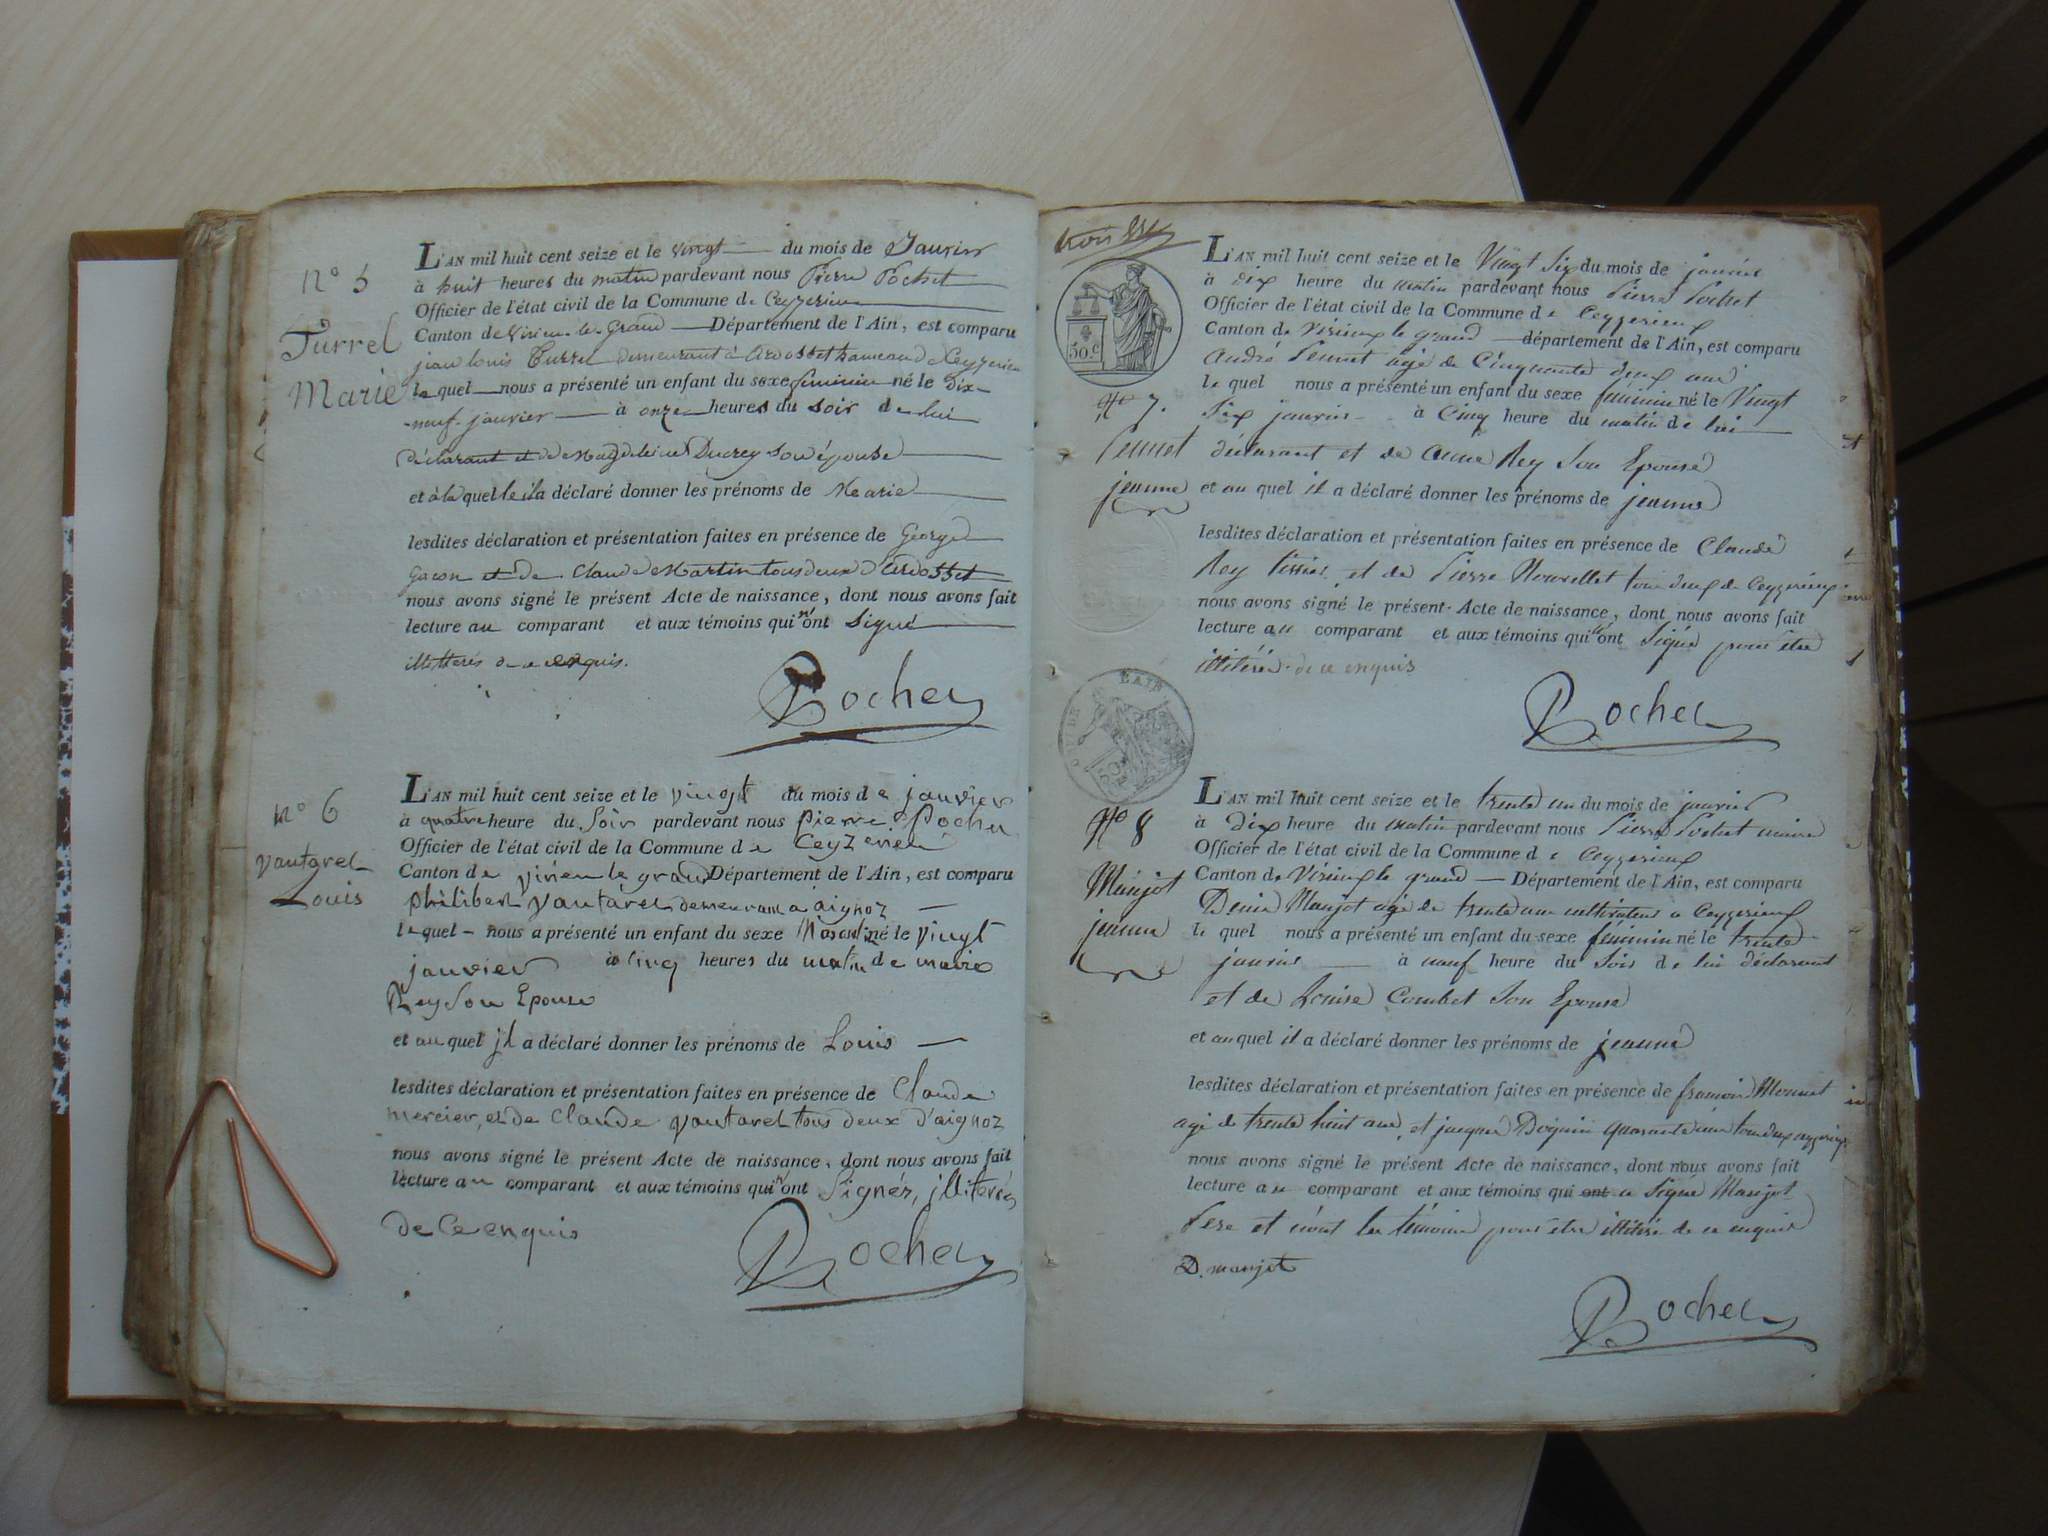 n° 5
Turrel
Marie
L'AN mil huit cent seize et le vingt du mois de Janvier
à huit heures du matin pardevant nous Pierre Pochet
Officier de l'état civil de la Commune de Ceyzerieu
Canton de Virieu le Grand Département de l'Ain, est comparu
jean louis Turrel demeurant à Ardosset hameau de Ceyzerieu
lequel nous a présenté un enfant du sexe feminin né le dix-
neuf janvier à onze heures du soir de lui
déclarant et de Magdeleine Ducrey son épouse
et à la quelle il a déclaré donner les prénoms de Marie
lesdites déclaration et présentation faites en présence de George
Gacon et de Claude Martin tous deux d'Ardosset
nous avons signé le présent Acte de naissance, dont nous avons fait
lecture au comparant et aux témoins qui n'ont signé
illitterés de ce enquis.
Pochet
n° 6
vautarel
Louis
L'AN mil huit cent seize et le vingt du mois de janvier
à quatre heure du soir pardevant nous pierre Pochet
Officier de l'état civil de la Commune de Ceyzerieu
Canton de virieu le grand Département de l'Ain, est comparu
philibert vautarel demeurant a aignoz
lequel nous a présenté un enfant du sexe Masculin né le vingt
janvier à cinq heures du matin de marie
Rey Son Epouse
et au quel jl a déclaré donner les prénoms de Louis
lesdites déclaration et présentation faites en présence de Claude
mercier, et de Claude vautarel tous deux d'aignoz
nous avons signé le présent Acte de naissance, dont nous avons fait
lecture au comparant et aux témoins qui n'ont Signés, jlliterés
de Ce enquis
Pochet
trois
50.c
N° 7.
Peunet
jeanne
L'AN mil huit cent seize et le Vingt Six du mois de janvier
à dix heure du matin pardevant nous Pierre Pochet
Officier de l'état civil de la Commune de Ceyzerieux
Canton de Virieux le grand département de l'Ain, est comparu
André Peunet agé de Cinquante deux ans
le quel nous a présenté un enfant du sexe féminin né le Vingt
Six janvier à Cinq heure du matin de lui
déclarant et de Anne Rey Son Epouse
et au quel il a déclaré donner les prénoms de jeanne
lesdites déclaration et présentation faites en présence de Claude
Rey tissier et de Pierre Nouvellet tous deux de Ceyzerieux
nous avons signé le présent Acte de naissance, dont nous avons fait
lecture au comparant et aux témoins qui n'ont Signé pour être
illitérés de ce enquis
Pochet
N° 8
Manjot
jeanne
L'AN mil huit cent seize et le trente un du mois de janvier
à Dix heure du matin pardevant nous Pierre Pochet maire
Officier de l'état civil de la Commune de Ceyzerieux
Canton de Virieux le grand Département de l'Ain, est comparu
Denis Manjot agé de trente ans cultivateur a Ceyzerieux
le quel nous a présenté un enfant du sexe féminin né le trente
janvier à neuf heure du Soir de lui déclarant
et de Louise Combet Son Epouse
et au quel il a déclaré donner les prénoms de jeanne
lesdites déclaration et présentation faites en présence de francois Monnet
agé de trente huit ans et jacques quarante tous deux
nous avons signé le présent Acte de naissance, dont nous avons fait
lecture au comparant et aux témoins qui ont a Signé Manjot
Pere et n'ont les témoins pour etre illitéré de ce enquis
D. manjot
Pochet